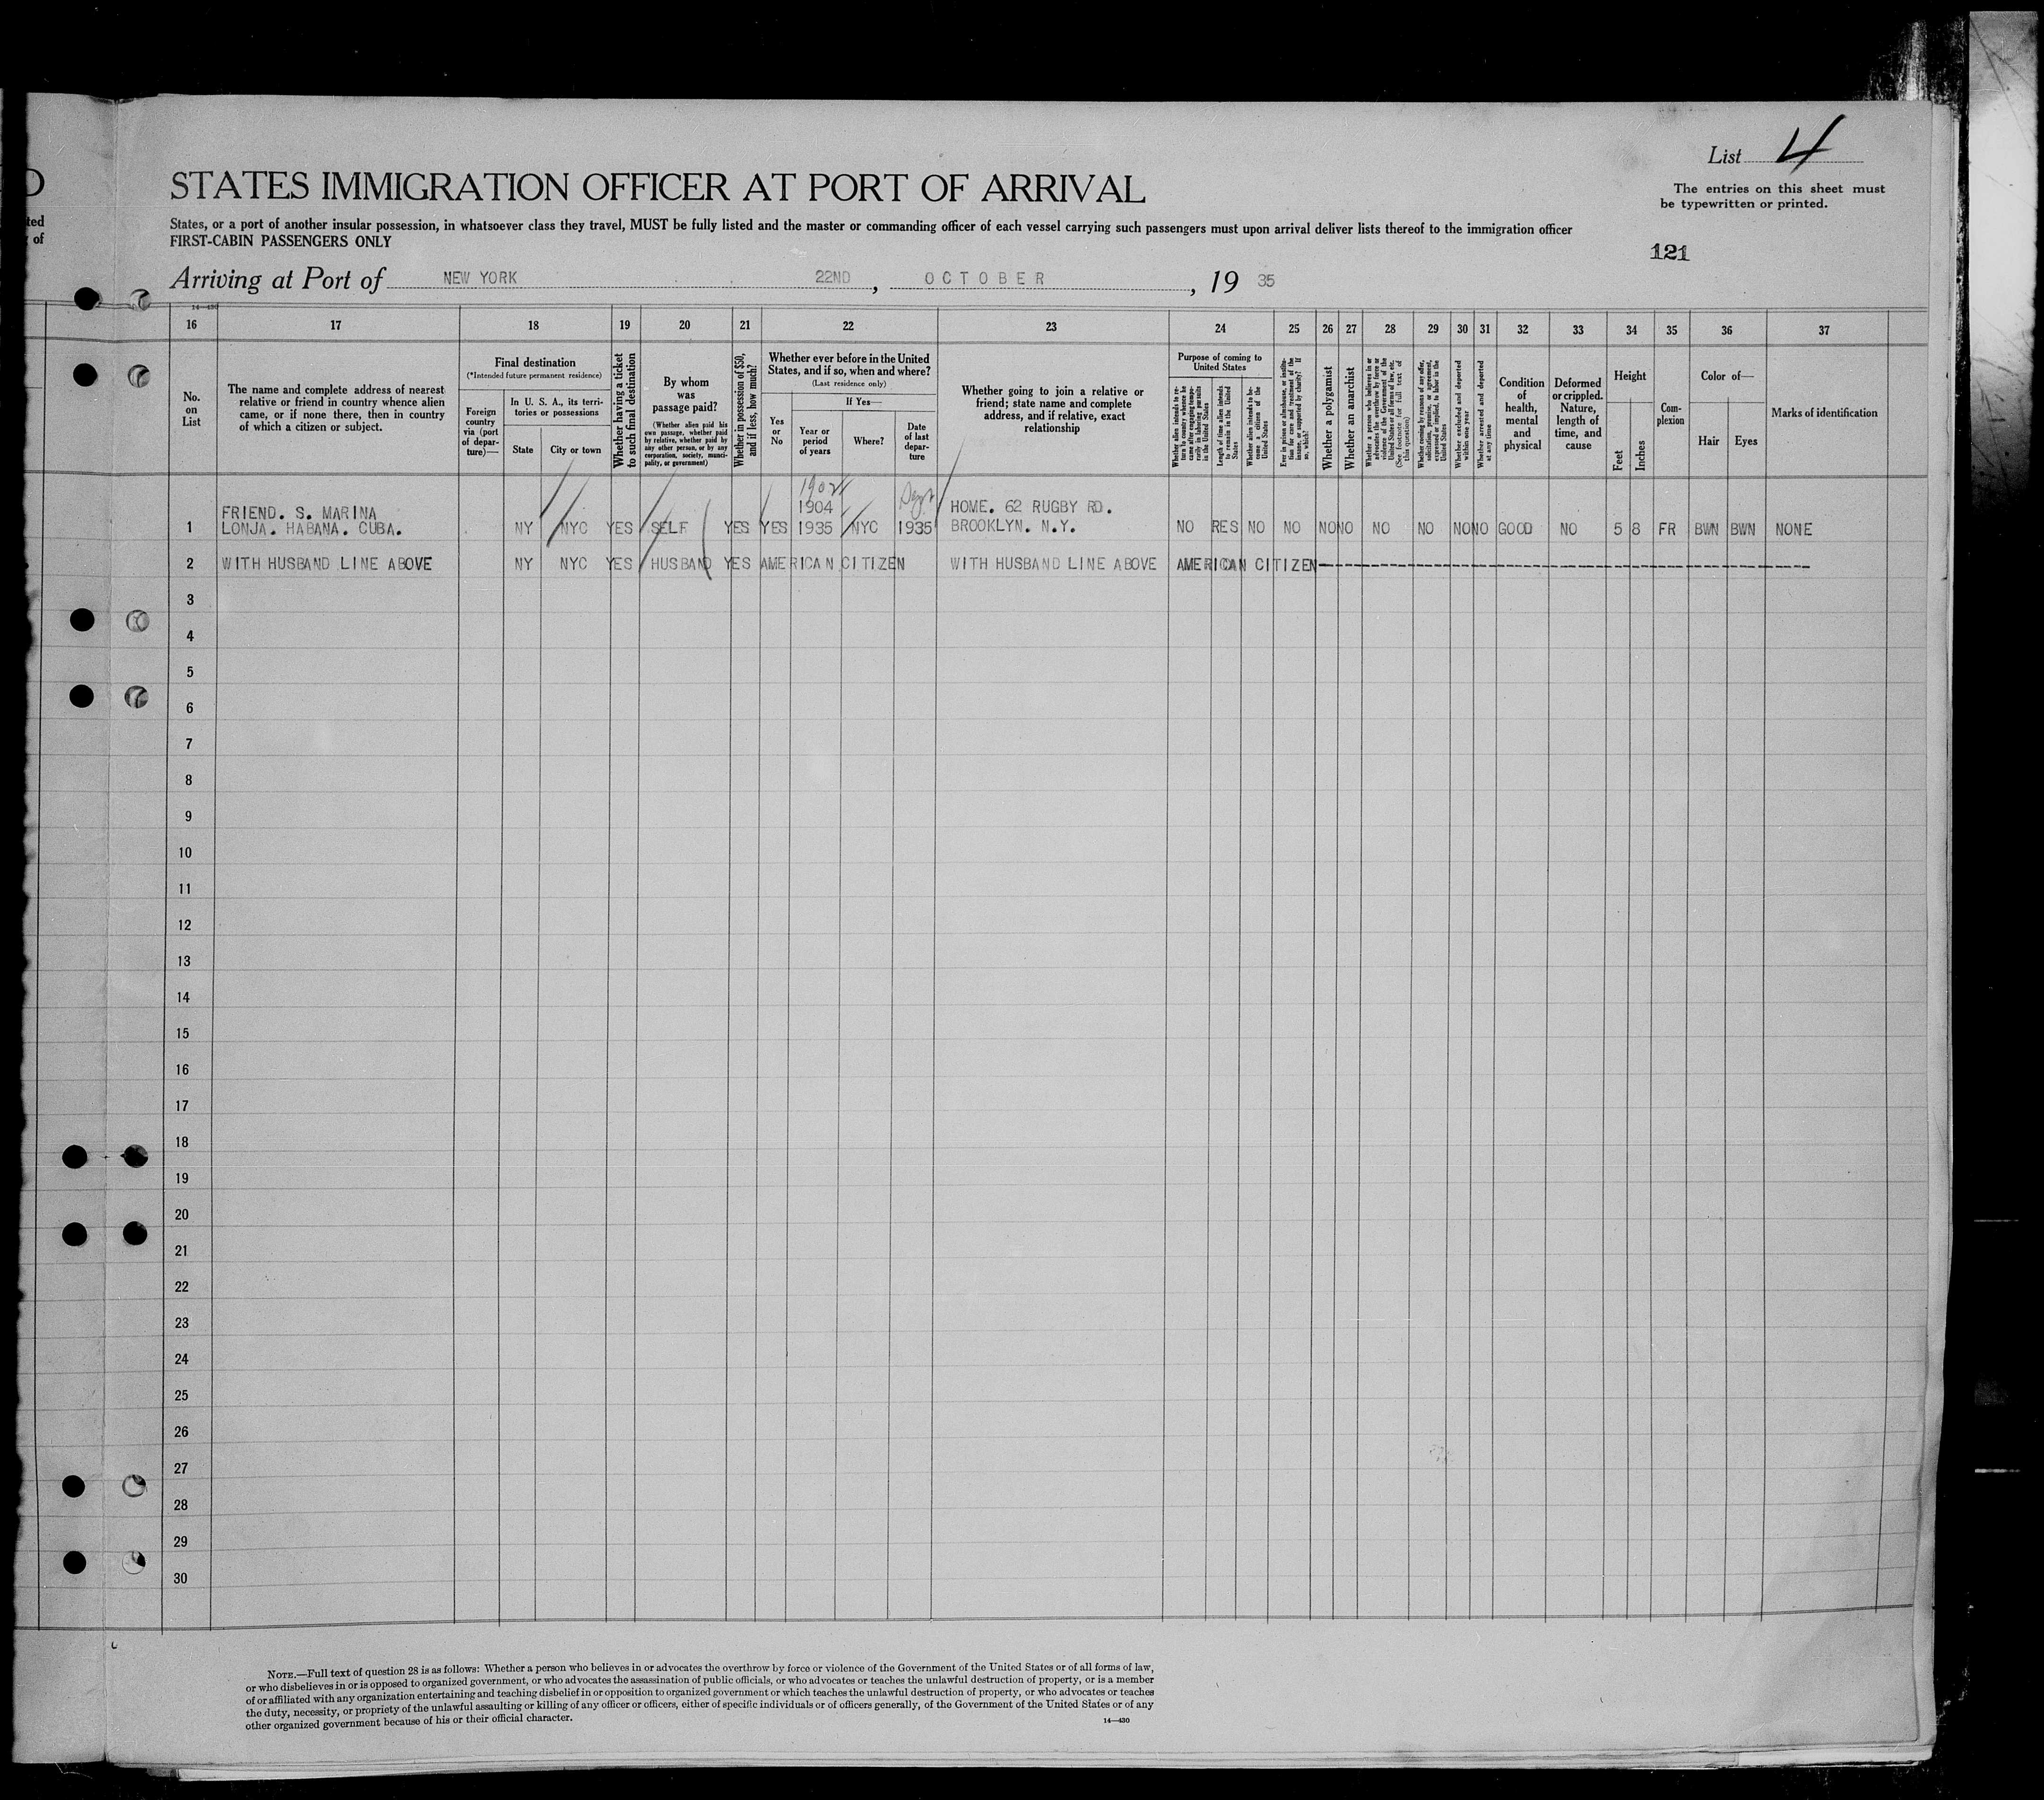 D
ted
of
List 4
STATES IMMIGRATION OFFICER AT PORT OF ARRIVAL
The entries on this sheet must
be typewritten or printed.
States, or a port of another insular possession, in whatsoever class they travel, MUST be fully listed and the master or commanding officer of each vessel carrying such passengers must upon arrival deliver lists thereof to the immigration officer
FIRST-CABIN PASSENGERS ONLY
121
Arriving at Port of NEW YORK 22ND, OCTOBER, 1935
14—430
16 17 18 19 20 21 22 23 24 25 26 27 28 29 30 31 32 33 34 35 36 37
No.
on
List
The name and complete address of nearest
relative or friend in country whence alien
came, or if none there, then in country
of which a citizen or subject.
Final destination
(*Intended future permanent residence)
Foreign
country
via (port
of depar-
ture)—
In U. S. A., its terri-
tories or possessions
State
City or town
Whether having a ticket
to such final destination
By whom
was
passage paid?
(Whether alien paid his
own passage, whether paid
by relative, whether paid by
any other person, or by any
corporation, society, munici-
pality, or government)
Whether in possession of $50,
and if less, how much?
Whether ever before in the United
States, and if so, when and where?
(Last residence only)
Yes
or
No
If Yes—
Year or
period
of years
Where?
Date
of last
depar-
ture
Whether going to join a relative or
friend; state name and complete
address, and if relative, exact
relationship
Purpose of coming to
United States
Whether alien intends to re-
turn to country whence he
came after engaging tempo-
rarily in laboring pursuits
in the United States
Length of time alien intends
to remain in the United
States
Whether alien intends to be-
come a citizen of the
United States
Ever in prison or almshouse, or institu-
tion for care and treatment of the
insane, or supported by charity? If
so, which?
Whether a polygamist
Whether an anarchist
Whether a person who believes in or
advocates the overthrow by force or
violence of the Government of the
United States or all forms of law, etc.
(See footnote for full text of
this question)
Whether coming by reasons of any offer,
solicitation, promise, or agreement,
expressed or implied, to labor in the
United States
Whether excluded and deported
within one year
Whether arrested and deported
at any time
Condition
of
health,
mental
and
physical
Deformed
or crippled.
Nature,
length of
time, and
cause
Height
Feet
Inches
Com-
plexion
Color of—
Hair
Eyes
Marks of identification
FRIEND. S. MARINA 1904 HOME. 62 RUGBY RD.
1 LONJA. HABANA. CUBA. NY NYC YES SELF YES YES 1935 NYC 1935 BROOKLYN. N.Y. NO RES NO NO NO NO NO NO NO NO GOOD NO 5 8 FR BWN BWN NONE
2 WITH HUSBAND LINE ABOVE NY NYC YES HUSBAND YES AMERICAN CITIZEN WITH HUSBAND LINE ABOVE AMERICAN CITIZEN
3
4
5
6
7
8
9
10
11
12
13
14
15
16
17
18
19
20
21
22
23
24
25
26
27
28
29
30
NOTE.—Full text of question 28 is as follows: Whether a person who believes in or advocates the overthrow by force or violence of the Government of the United States or of all forms of law,
or who disbelieves in or is opposed to organized government, or who advocates the assassination of public officials, or who advocates or teaches the unlawful destruction of property, or is a member
of or affiliated with any organization entertaining and teaching disbelief in or opposition to organized government or which teaches the unlawful destruction of property, or who advocates or teaches
the duty, necessity, or propriety of the unlawful assaulting or killing of any officer or officers, either of specific individuals or of officers generally, of the Government of the United States or of any
other organized government because of his or their official character.
14—430